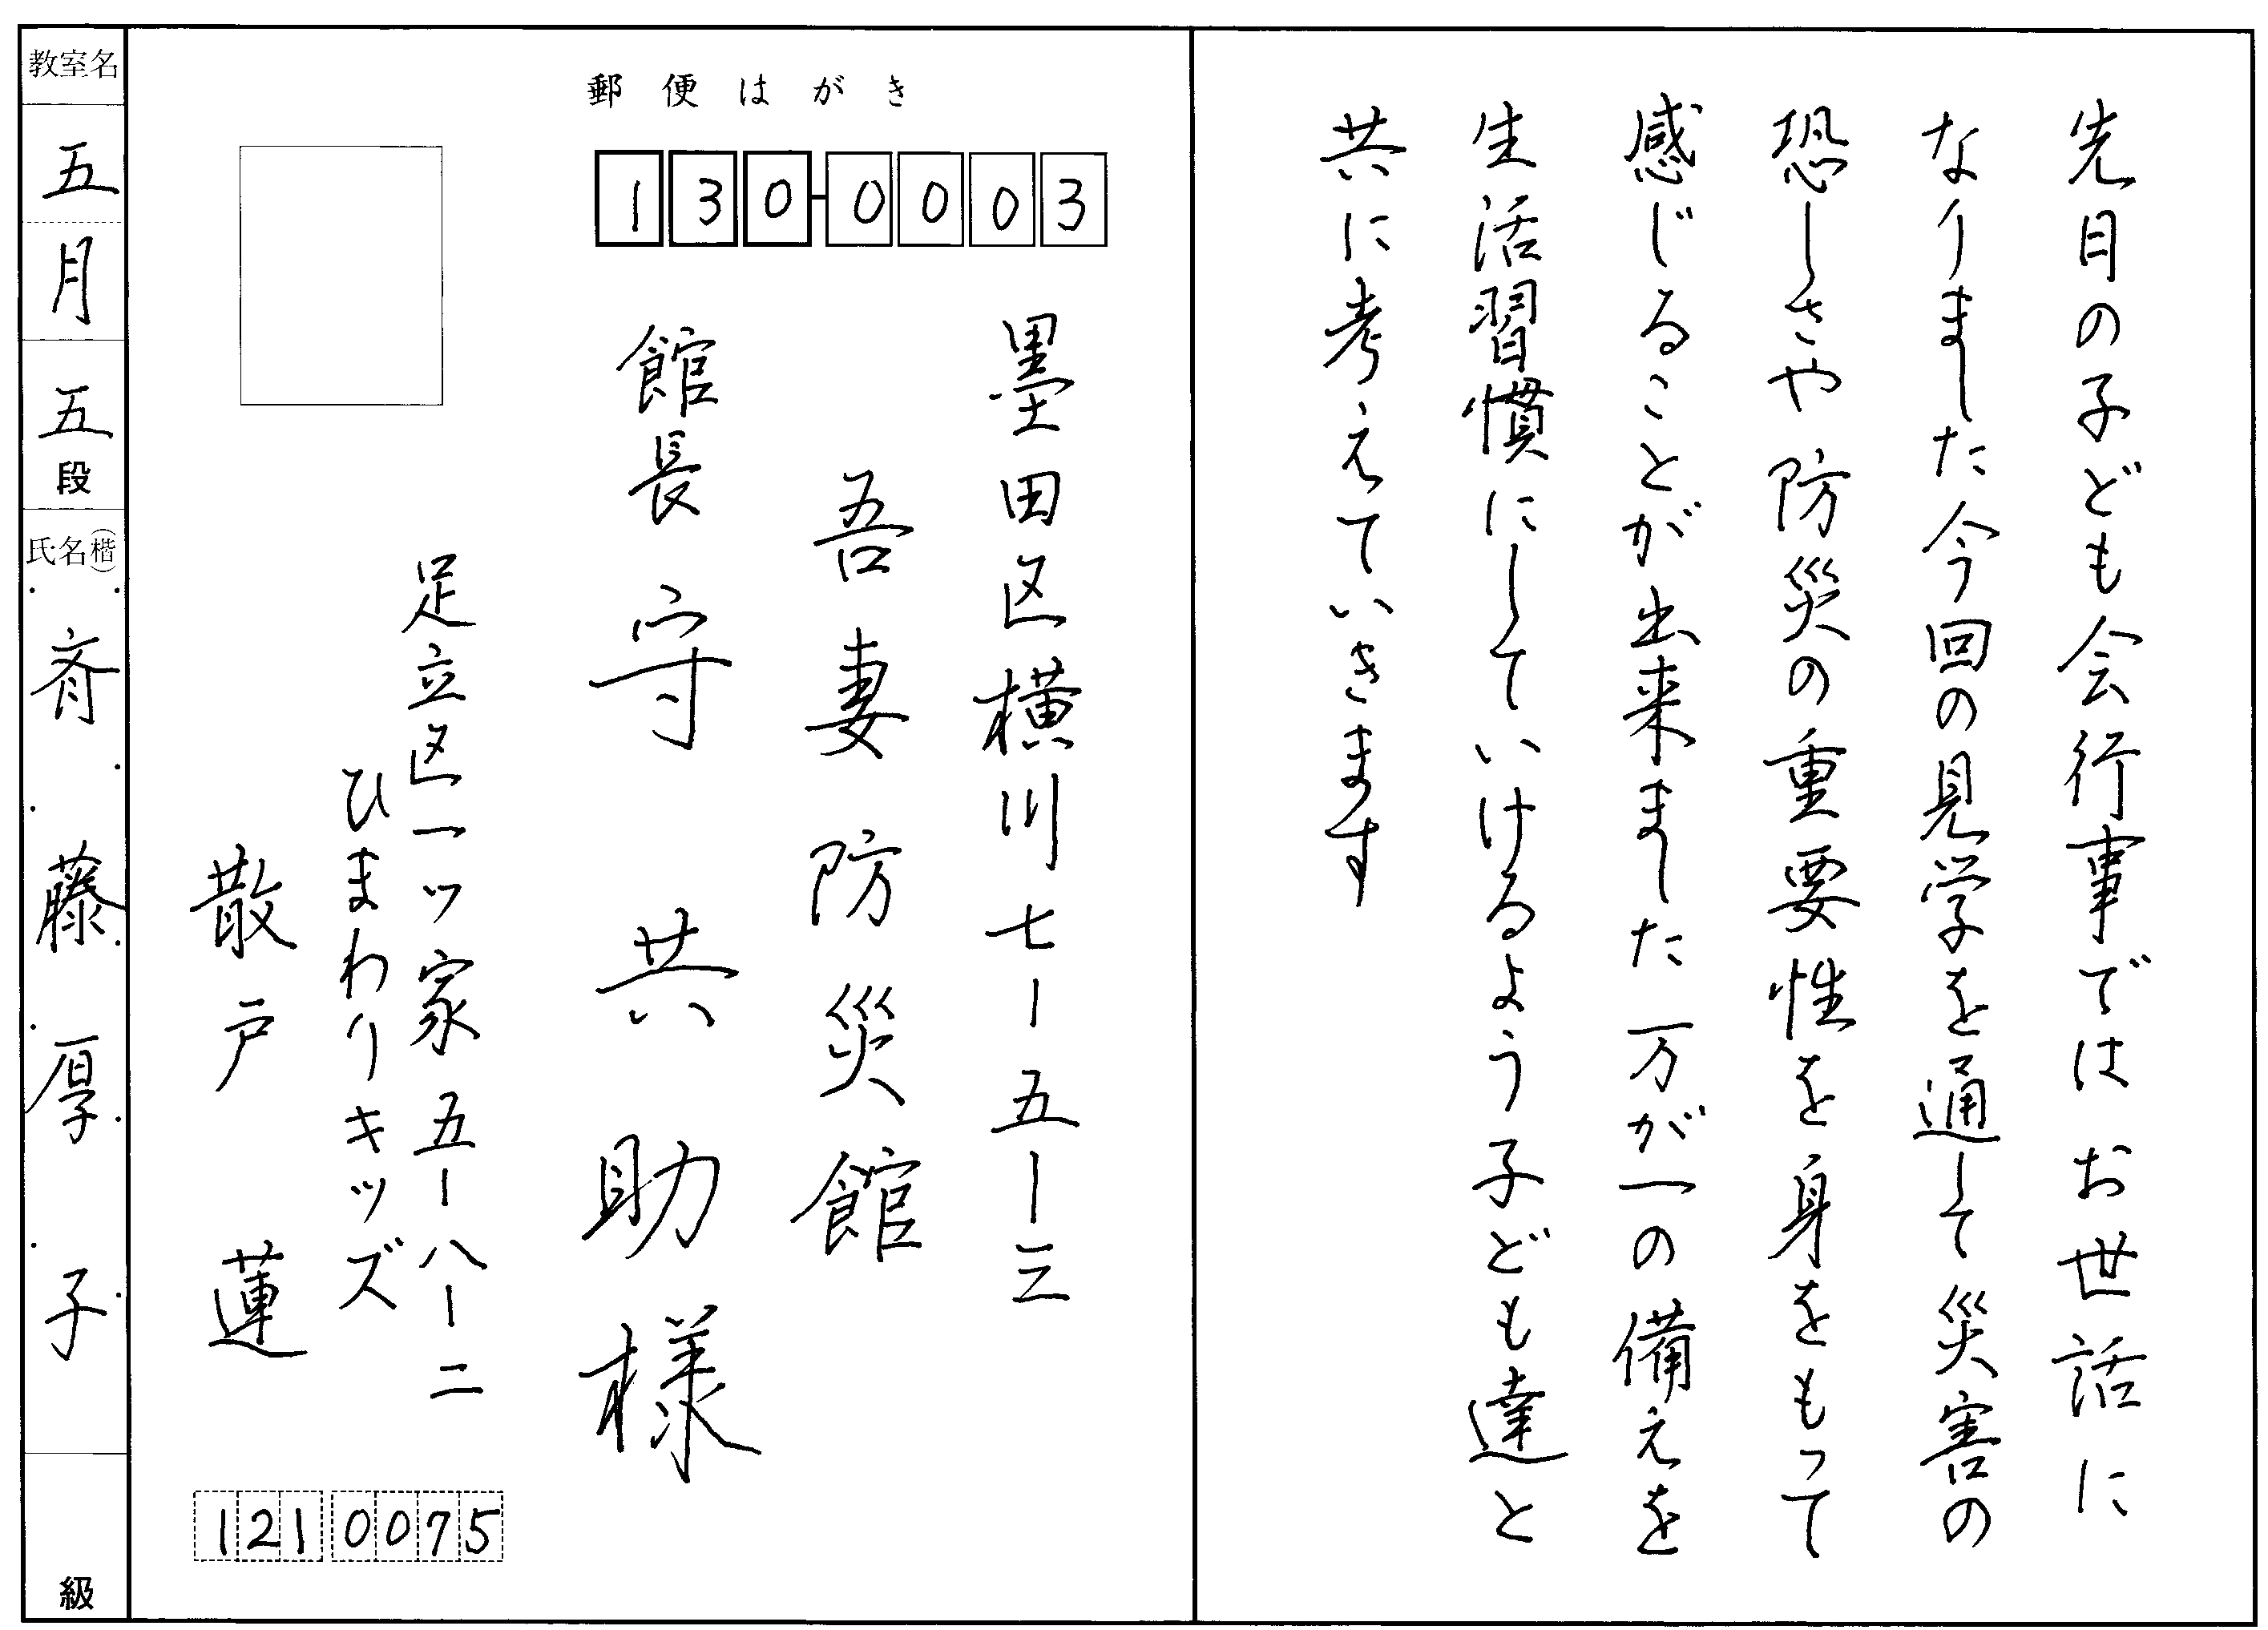 先日の子ども会行事ではお世話に
なりました今回の見学を通して災害の
恐しさや防災の重要性を身をもって
感じることが出来ました万が一の備えを
生活習慣にしていけるよう子ども達と
共に考えていきます
郵便はがき
130-0003
墨田区横川七ー五ー三
吾妻防災館
館長 守 共助様
足立区一ツ家五ー八ー二
ひまわりキッズ
散戸 蓮
121 0075
教室名
五月
五段
氏名(楷)
斉藤厚子
級